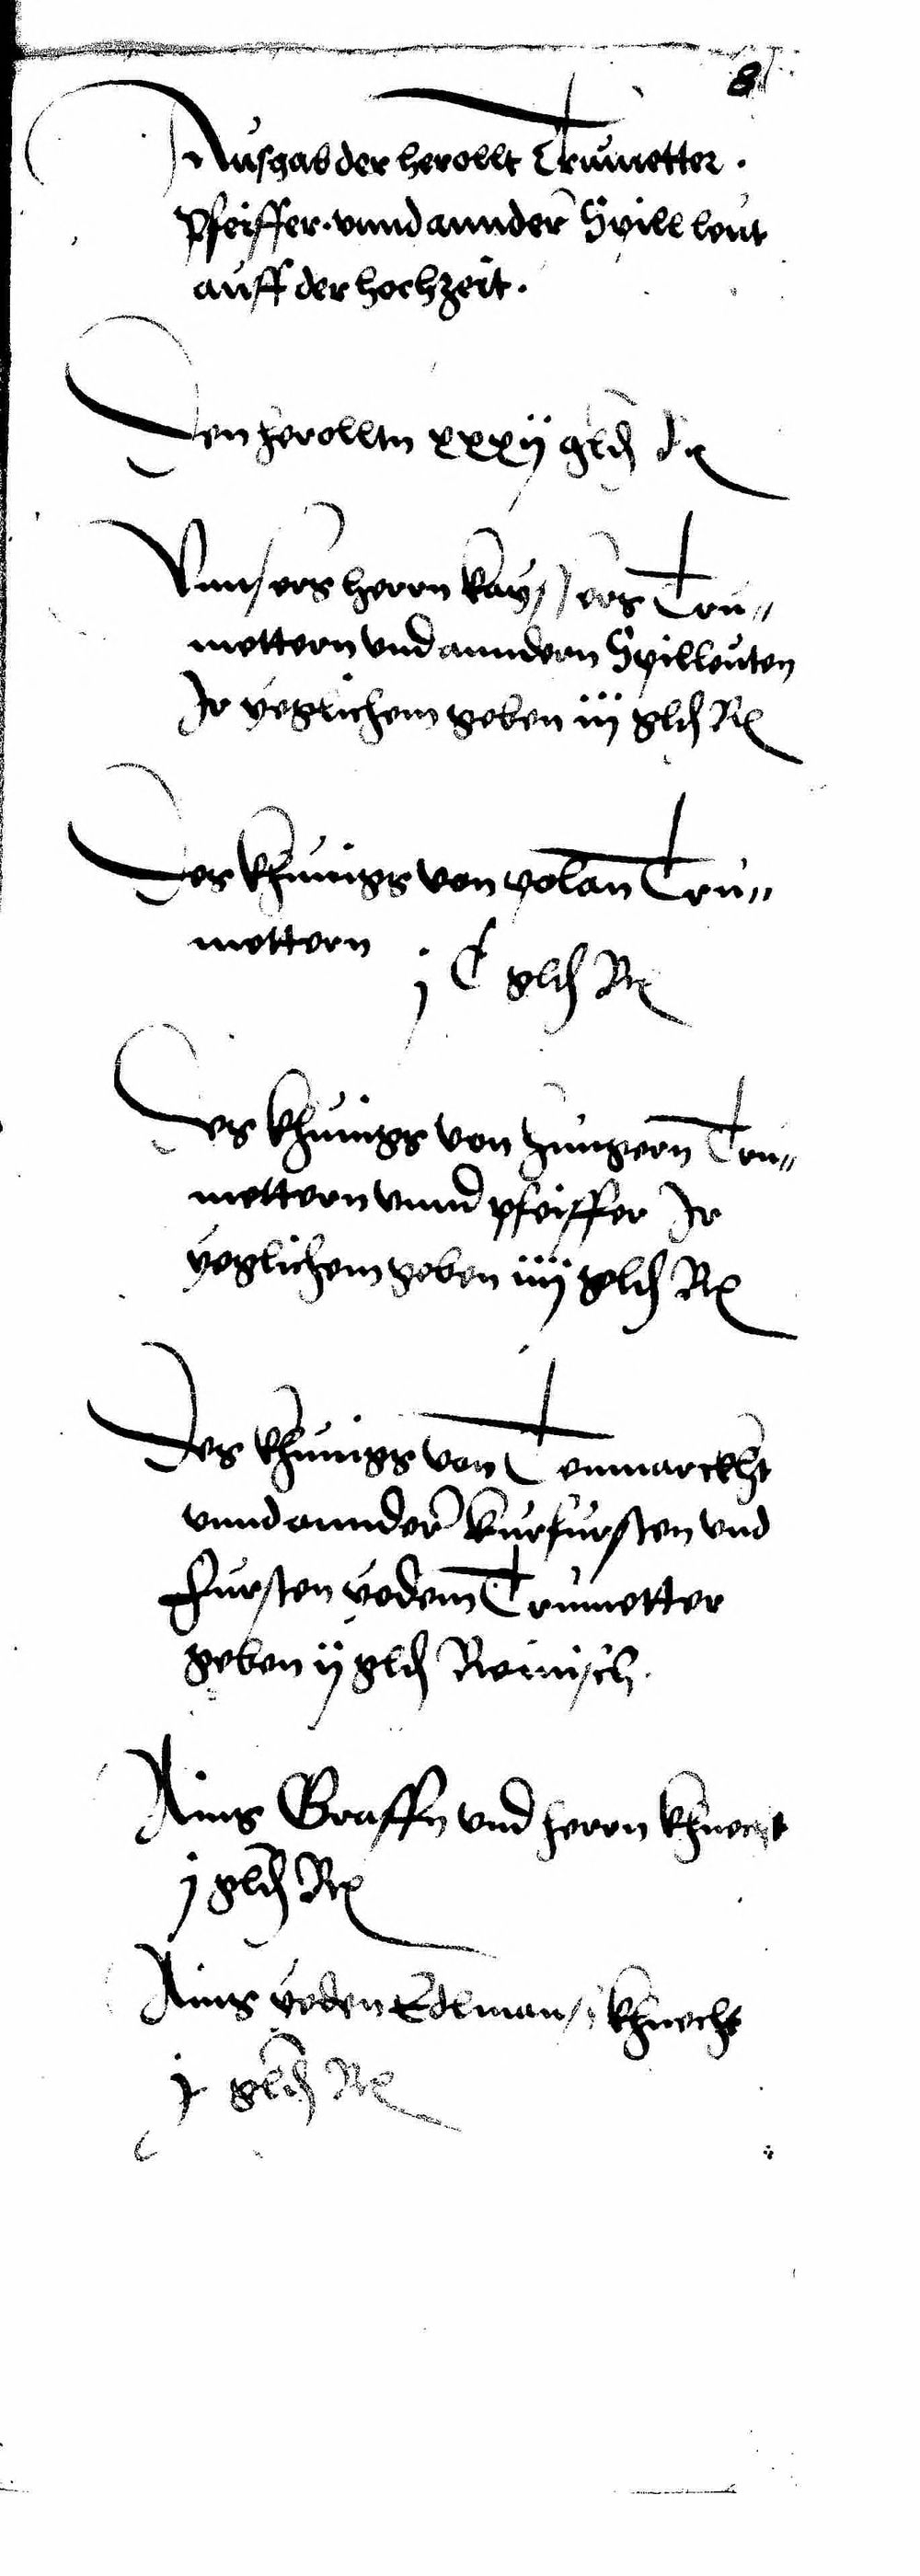 8
Ausgab der herollt Trumetter.
Pfeiffer. vnnd annder Spill leut
auff der hochzeit.
Den herolltn xxxij gld Rx
Vnnsers herrn kayssers Tru„
mettern vnd anndern Spilleuten
Ir yeglichem geben iij gld Rx
Des khunigs von polan Tru„
mettern j C gld Rx
Des khunigs von hungern Tru„
mettern vnnd pfeiffer Ir
yeglichem geben iiij gld Rx
Des khunigs von Tenmarckht
vnnd annder kurfursten vnd
fursten yedem Trumetter
geben ij gld Reinisch.
Ains Graffn vnd herrn khnecht
j gld Rx
Ains yeden Edlmans khnecht
j gld Rx